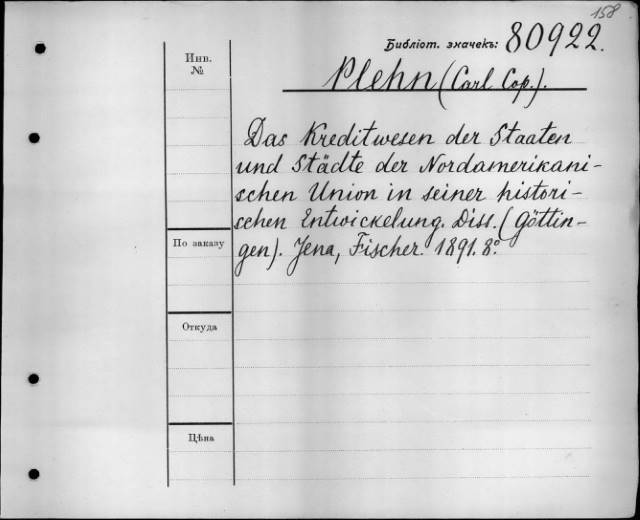 158
Библіот. значекъ: 80922.
Инв. №
Plehn (Carl Cop.).
Das Kreditwesen der Staaten
und Städte der Nordamerikani-
schen Union in seiner histori-
schen Entwickelung. Diss. (Götting-
gen). Jena, Fischer. 1891. 8°.
По заказу
Откуда
Цѣна